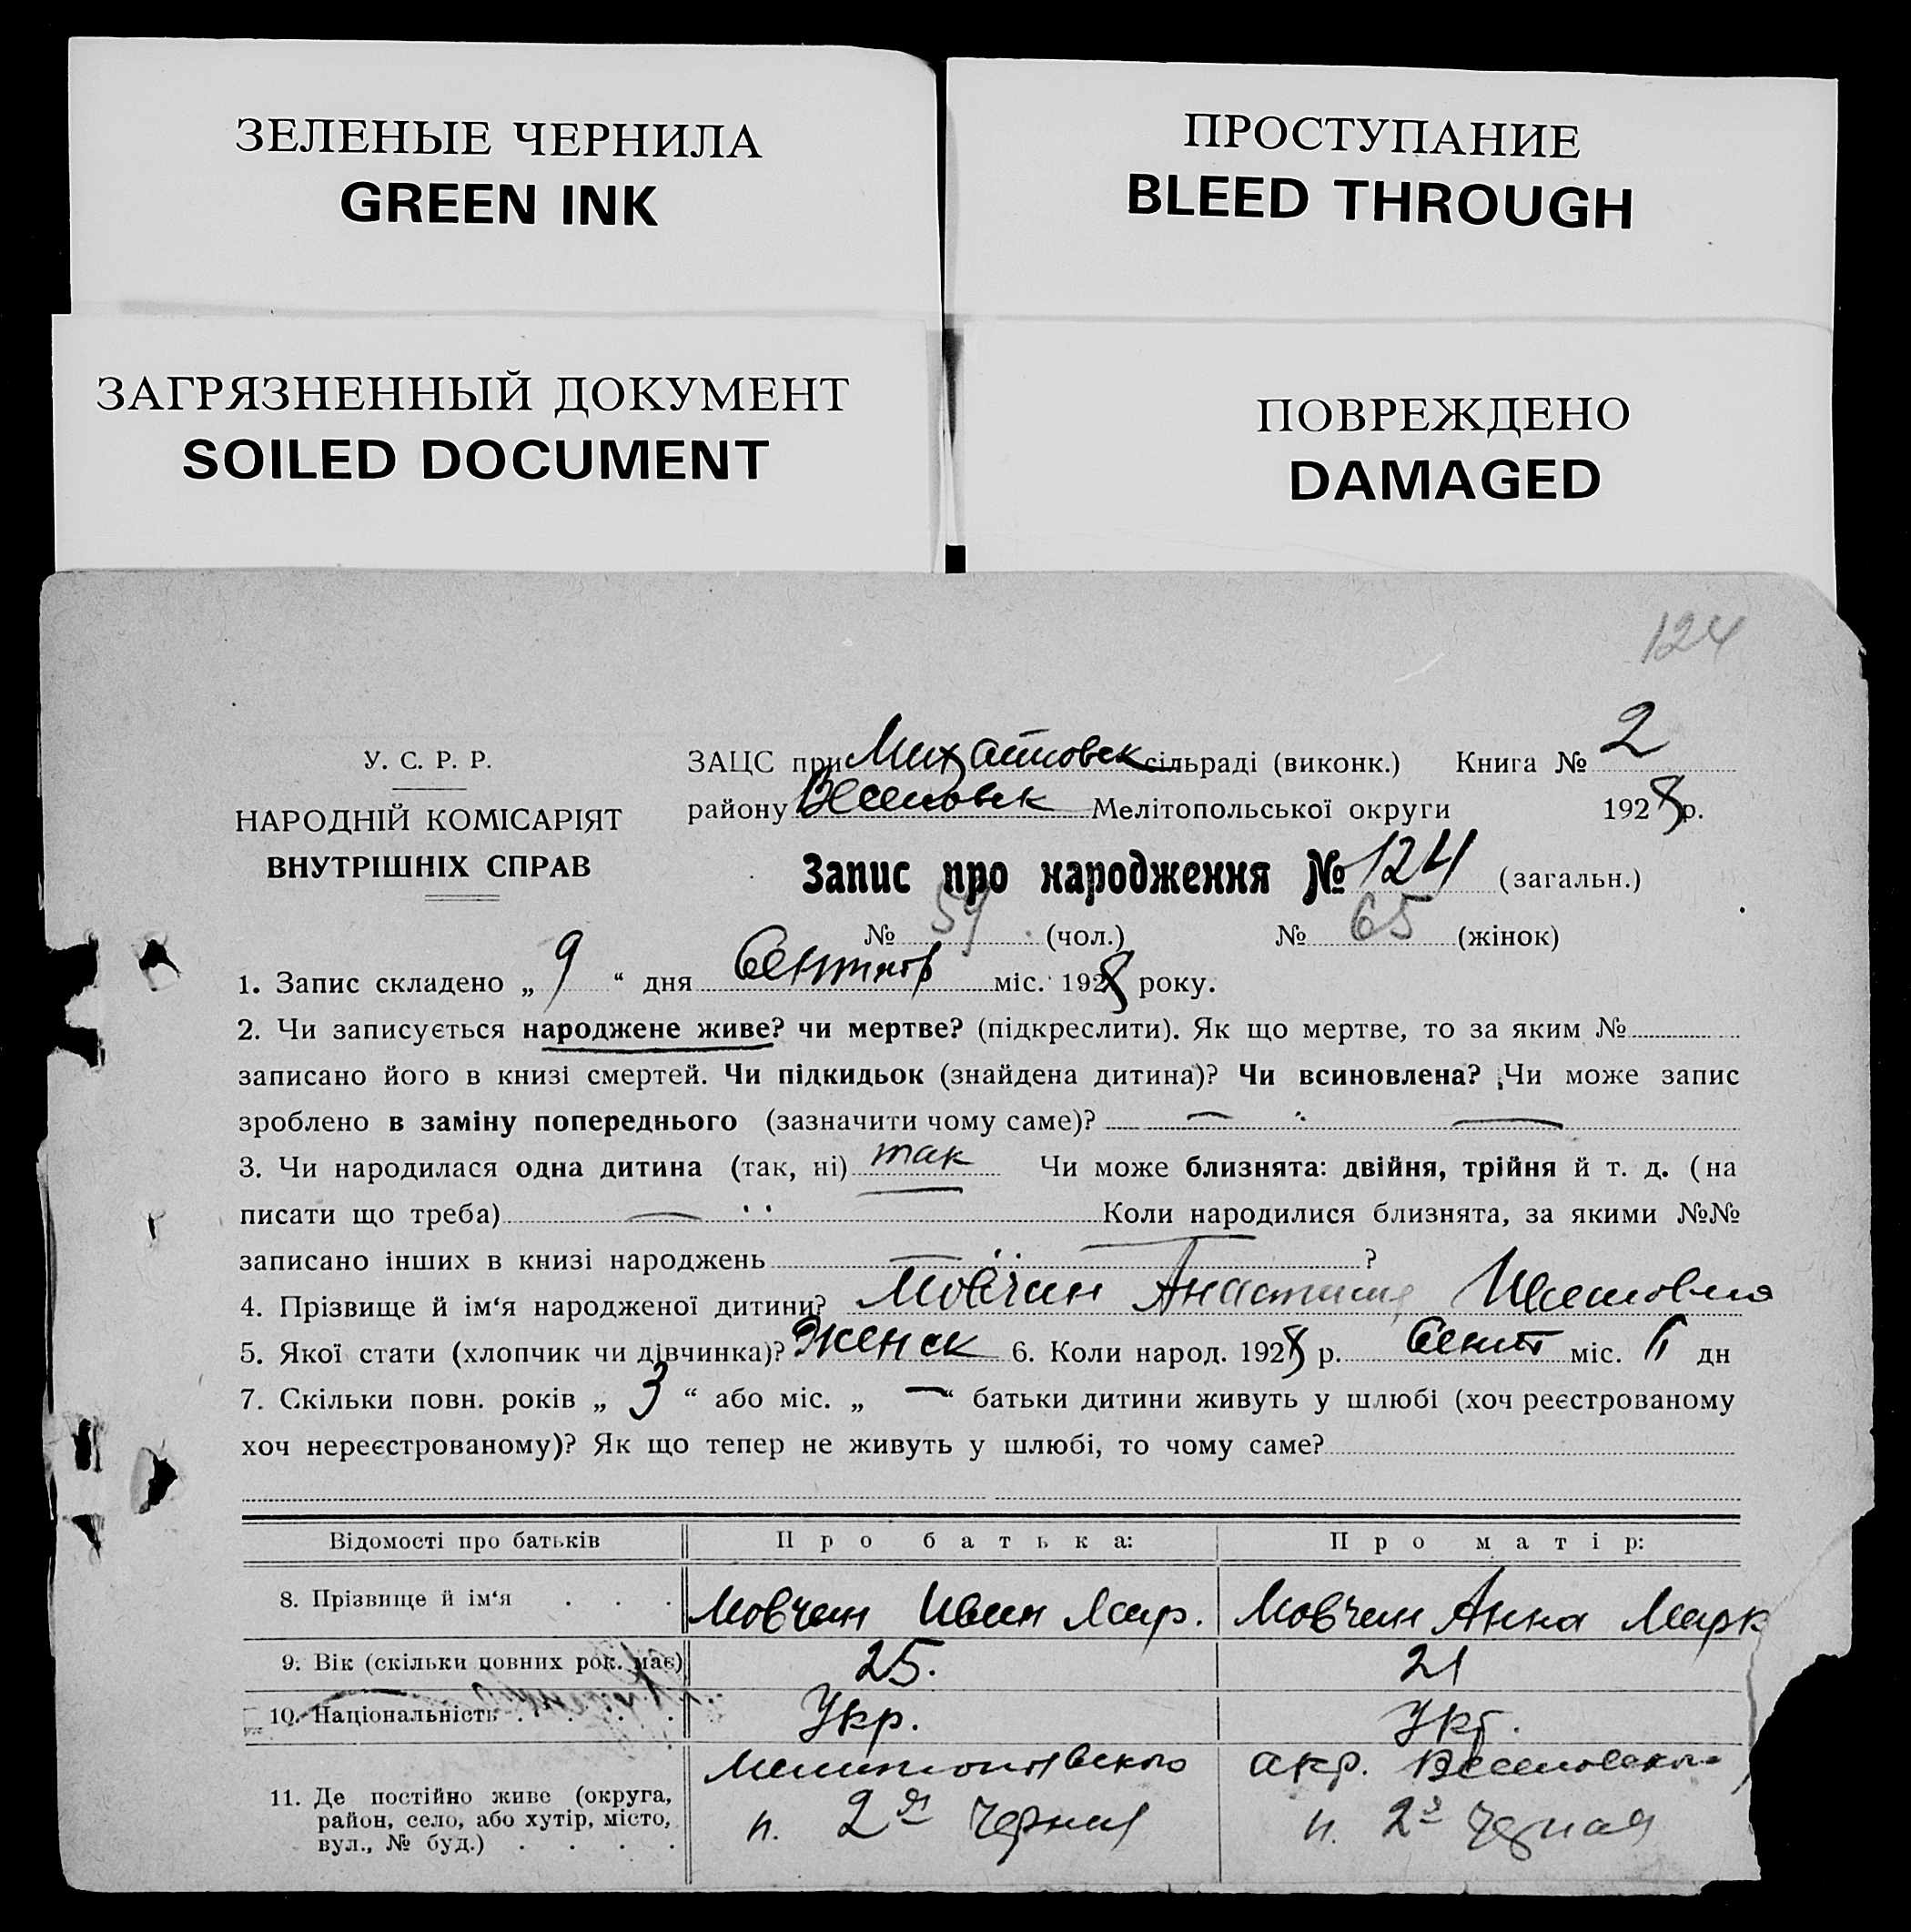 ЗЕЛЕНЫЕ ЧЕРНИЛА
GREEN INK
ПРОСТУПАНИЕ
BLEED THROUGH
ЗАГРЯЗНЕННЫЙ ДОКУМЕНТ
SOILED DOCUMENT
ПОВРЕЖДЕНО
DAMAGED
124
У. С. Р. Р.
НАРОДНІЙ КОМІСАРІЯТ
ВНУТРІШНІХ СПРАВ
ЗАЦС при Михайловск сільраді (виконк.) Книга № 2
району Веселовск Мелітопольської округи 1928 р.
Запис про народження № 124 (загальн.)
№ 59 (чол.) № 65 (жінок)
1. Запис складено „ 9 “ дня Сентябр міс. 1928 року.
2. Чи записується народжене живе? чи мертве? (підкреслити). Як що мертве, то за яким №
записано його в книзі смертей. Чи підкидьок (знайдена дитина)? Чи всиновлена? Чи може запис
зроблено в заміну попереднього (зазначити чому саме)? —
3. Чи народилася одна дитина (так, ні) так Чи може близнята: двійня, трійня й т. д. (на
писати що треба) — Коли народилися близнята, за якими №№
записано інших в книзі народжень — ?
4. Прізвище й ім‘я народженої дитини? Мовчан Анастасия Ивановна
5. Якої стати (хлопчик чи дівчинка)? Женск 6. Коли народ. 1928 р. Сент міс. дн
7. Скільки повн. років „ 3 “ або міс. „ — “ батьки дитини живуть у шлюбі (хоч реєстрованому
хоч нереєстрованому)? Як що тепер не живуть у шлюбі, то чому саме?
Відомості про батьків Про батька: Про матір:
8. Прізвище й ім‘я . . . Мовчан Иван Мар. Мовчан Анна Марк
9. Вік (скільки повних рок. має) 25. 21
10. Національність . . . . Укр. Укр.
Мелитопольского окр. Веселовского
11. Де постійно живе (округа,
район, село, або хутір, місто,
вул., № буд.) . . . .
п. 2я Черная п. 2я Черная